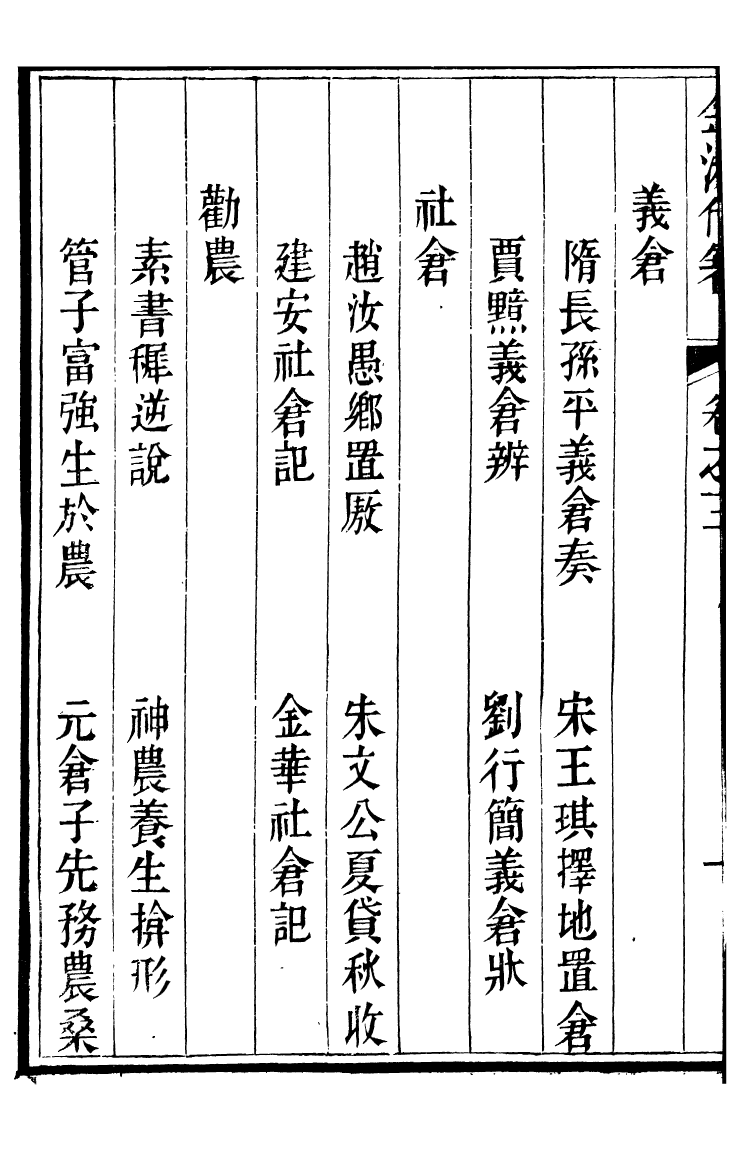 義倉
隋長孫平義倉奏　宋王琪擇地置倉
賈黯義倉辨　劉行簡義倉狀
社倉
趙汝愚鄉置厫　朱文公夏貸秋收
建安社倉記　金華社倉記
勸農
素書逆說　神農養生揜形
管子富強生於農　元倉子先務農桑